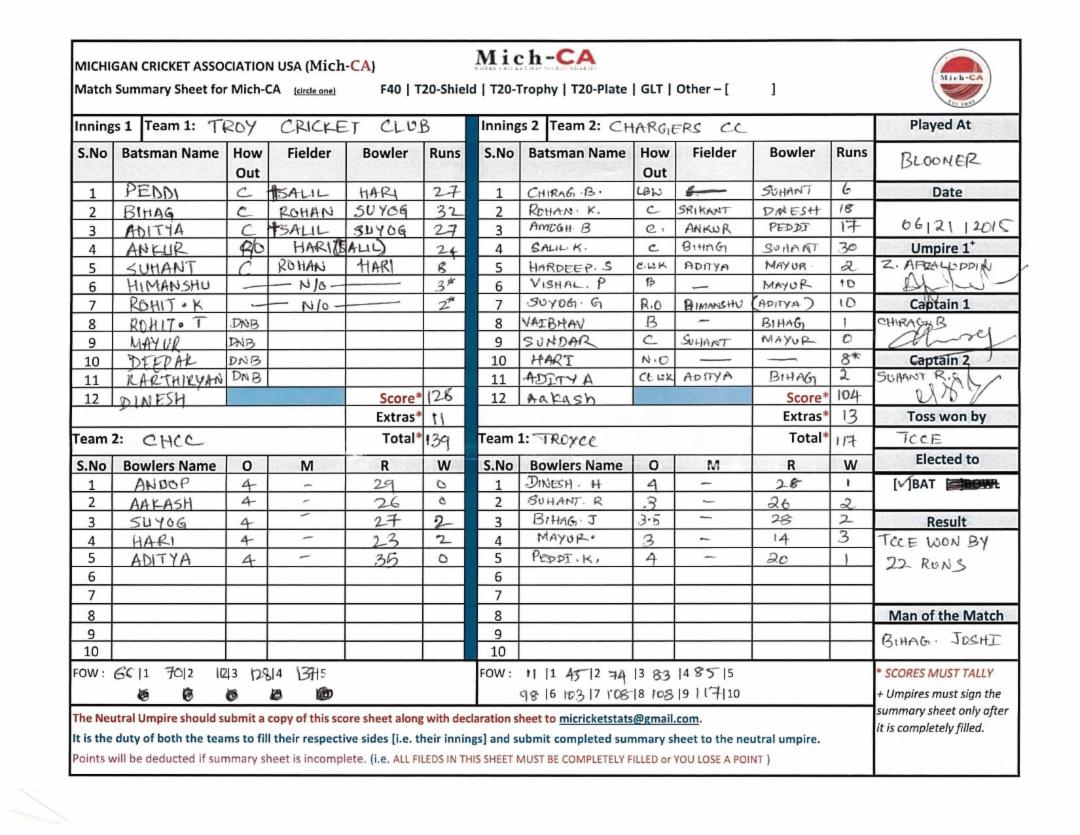 MICHIGAN CRICKET ASSOCIATION USA (Mich-CA)
Mich-CA
Match Summary Sheet for Mich-CA (circle one) F40 | T20-Shield | T20-Trophy | T20-Plate | GLT | Other – [ ]
Mich-CA
Innings 1 Team 1: TROY CRICKET CLUB
S.No Batsman Name How Out Fielder Bowler Runs
1 PEDDI C †SALIL HARI 27
2 BIHAG C ROHAN SUYOG 32
3 ADITYA C †SALIL SUYOG 27
4 ANKUR R/O HARI (SALIL) 24
5 SUHANT C ROHAN HARI 8
6 HIMANSHU — N/o — 3*
7 ROHIT . K — N/o — 2*
8 ROHIT . T DNB
9 MAYUR DNB
10 DEEPAK DNB
11 KARTHIKYAN DNB
12 DINESH Score* 128
Extras* 11
Team 2: CHCC Total* 139
S.No Bowlers Name O M R W
1 ANOOP 4 – 29 0
2 AAKASH 4 – 26 0
3 SUYOG 4 – 27 2
4 HARI 4 – 23 2
5 ADITYA 4 – 35 0
6
7
8
9
10
FOW : 66 |1 70|2 |3 128|4 137|5
Innings 2 Team 2: CHARGERS CC
S.No Batsman Name How Out Fielder Bowler Runs
1 CHIRAG . B . LBW SUHANT 6
2 ROHAN . K . C SRIKANT DINESH 18
3 AMOGH B C . ANKUR PEDDI 17
4 SALIL K . C BIHAG SUHANT 30
5 HARDEEP . S C.WK ADITYA MAYUR . 2
6 VISHAL . P B – MAYUR 10
7 SUYOG . G R.O HIMANSHU (ADITYA) 10
8 VAIBHAV B – BIHAG 1
9 SUNDAR C SUHANT MAYUR 0
10 HARI N.O — — 8*
11 ADITYA Ct WK ADITYA BIHAG 2
12 Aakash Score* 104
Extras* 13
Team 1: TROYCC Total* 117
S.No Bowlers Name O M R W
1 DINESH . H 4 – 28 1
2 SUHANT . R 3 – 26 2
3 BIHAG . J 3.5 – 28 2
4 MAYUR . 3 – 14 3
5 PEDDI . K , 4 – 20 1
6
7
8
9
10
FOW : 11 |1 45|2 74 |3 83 |4 85 |5
98 |6 103|7 108|8 108|9 117|10
Played At
BLOOMER
Date
06/21/2015
Umpire 1+
Z. AFZALUDDIN
Captain 1
CHIRAG B
Captain 2
SUHANT R.
Toss won by
TCCE
Elected to
[✓]BAT
Result
TCCE WON BY
22 RUNS
Man of the Match
BIHAG . JOSHI
* SCORES MUST TALLY
+ Umpires must sign the
summary sheet only after
it is completely filled.
The Neutral Umpire should submit a copy of this score sheet along with declaration sheet to micricketstats@gmail.com.
It is the duty of both the teams to fill their respective sides [i.e. their innings] and submit completed summary sheet to the neutral umpire.
Points will be deducted if summary sheet is incomplete. (i.e. ALL FILEDS IN THIS SHEET MUST BE COMPLETELY FILLED or YOU LOSE A POINT )